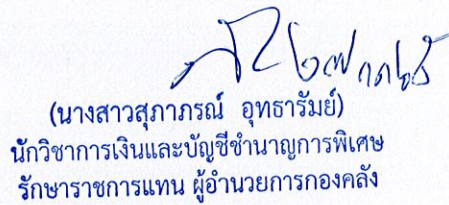 (นางสาวสุภาภรณ์ อุทธารัมย์)
นักวิชาการเงินและบัญชีชำนาญการพิเศษ
รักษาราชการแทน ผู้อำนวยการกองคลัง